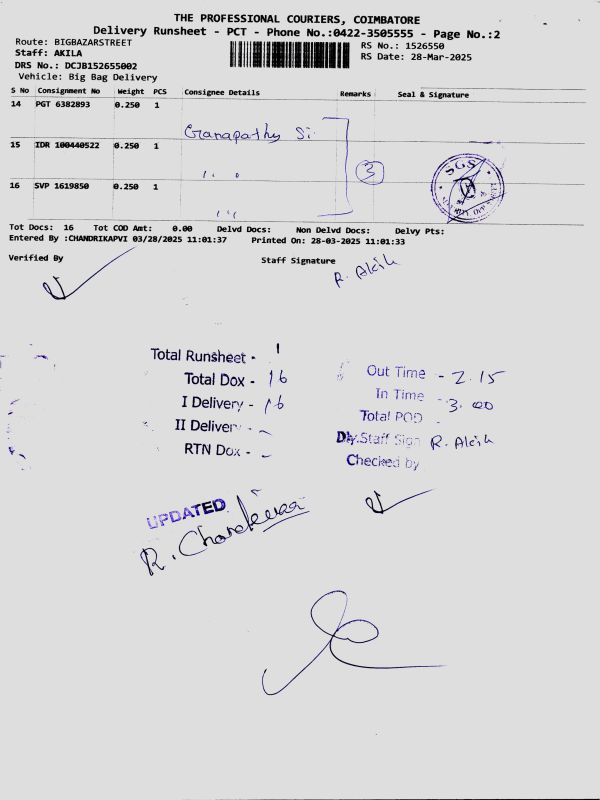 THE PROFESSIONAL COURIERS, COIMBATORE
Delivery Runsheet - PCT - Phone No.:0422-3505555 - Page No.:2
Route: BIGBAZARSTREET
Staff: AKILA
RS No.: 1526550
DRS No.: DCJB152655002
RS Date: 28-Mar-2025
Vehicle: Big Bag Delivery
S No Consignment No Weight PCS Consignee Details Remarks Seal & Signature
14 PGT 6382893 0.250 1
Ganapathy Si
15 IDR 100440522 0.250 1
3
SGS
16 SVP 1619850 0.250 1
Tot Docs: 16 Tot COD Amt: 0.00 Delvd Docs: Non Delvd Docs: Delvy Pts:
Entered By :CHANDRIKAPVI 03/28/2025 11:01:37 Printed On: 28-03-2025 11:01:33
Verified By Staff Signature
R. Akila
Total Runsheet - 1
Total Dox - 16
I Delivery - 16
II Delivery -
RTN Dox -
Out Time - 2.15
In Time - 3.00
Total POD
Dly.Staff Sign R. Akila
Checked by
UPDATED